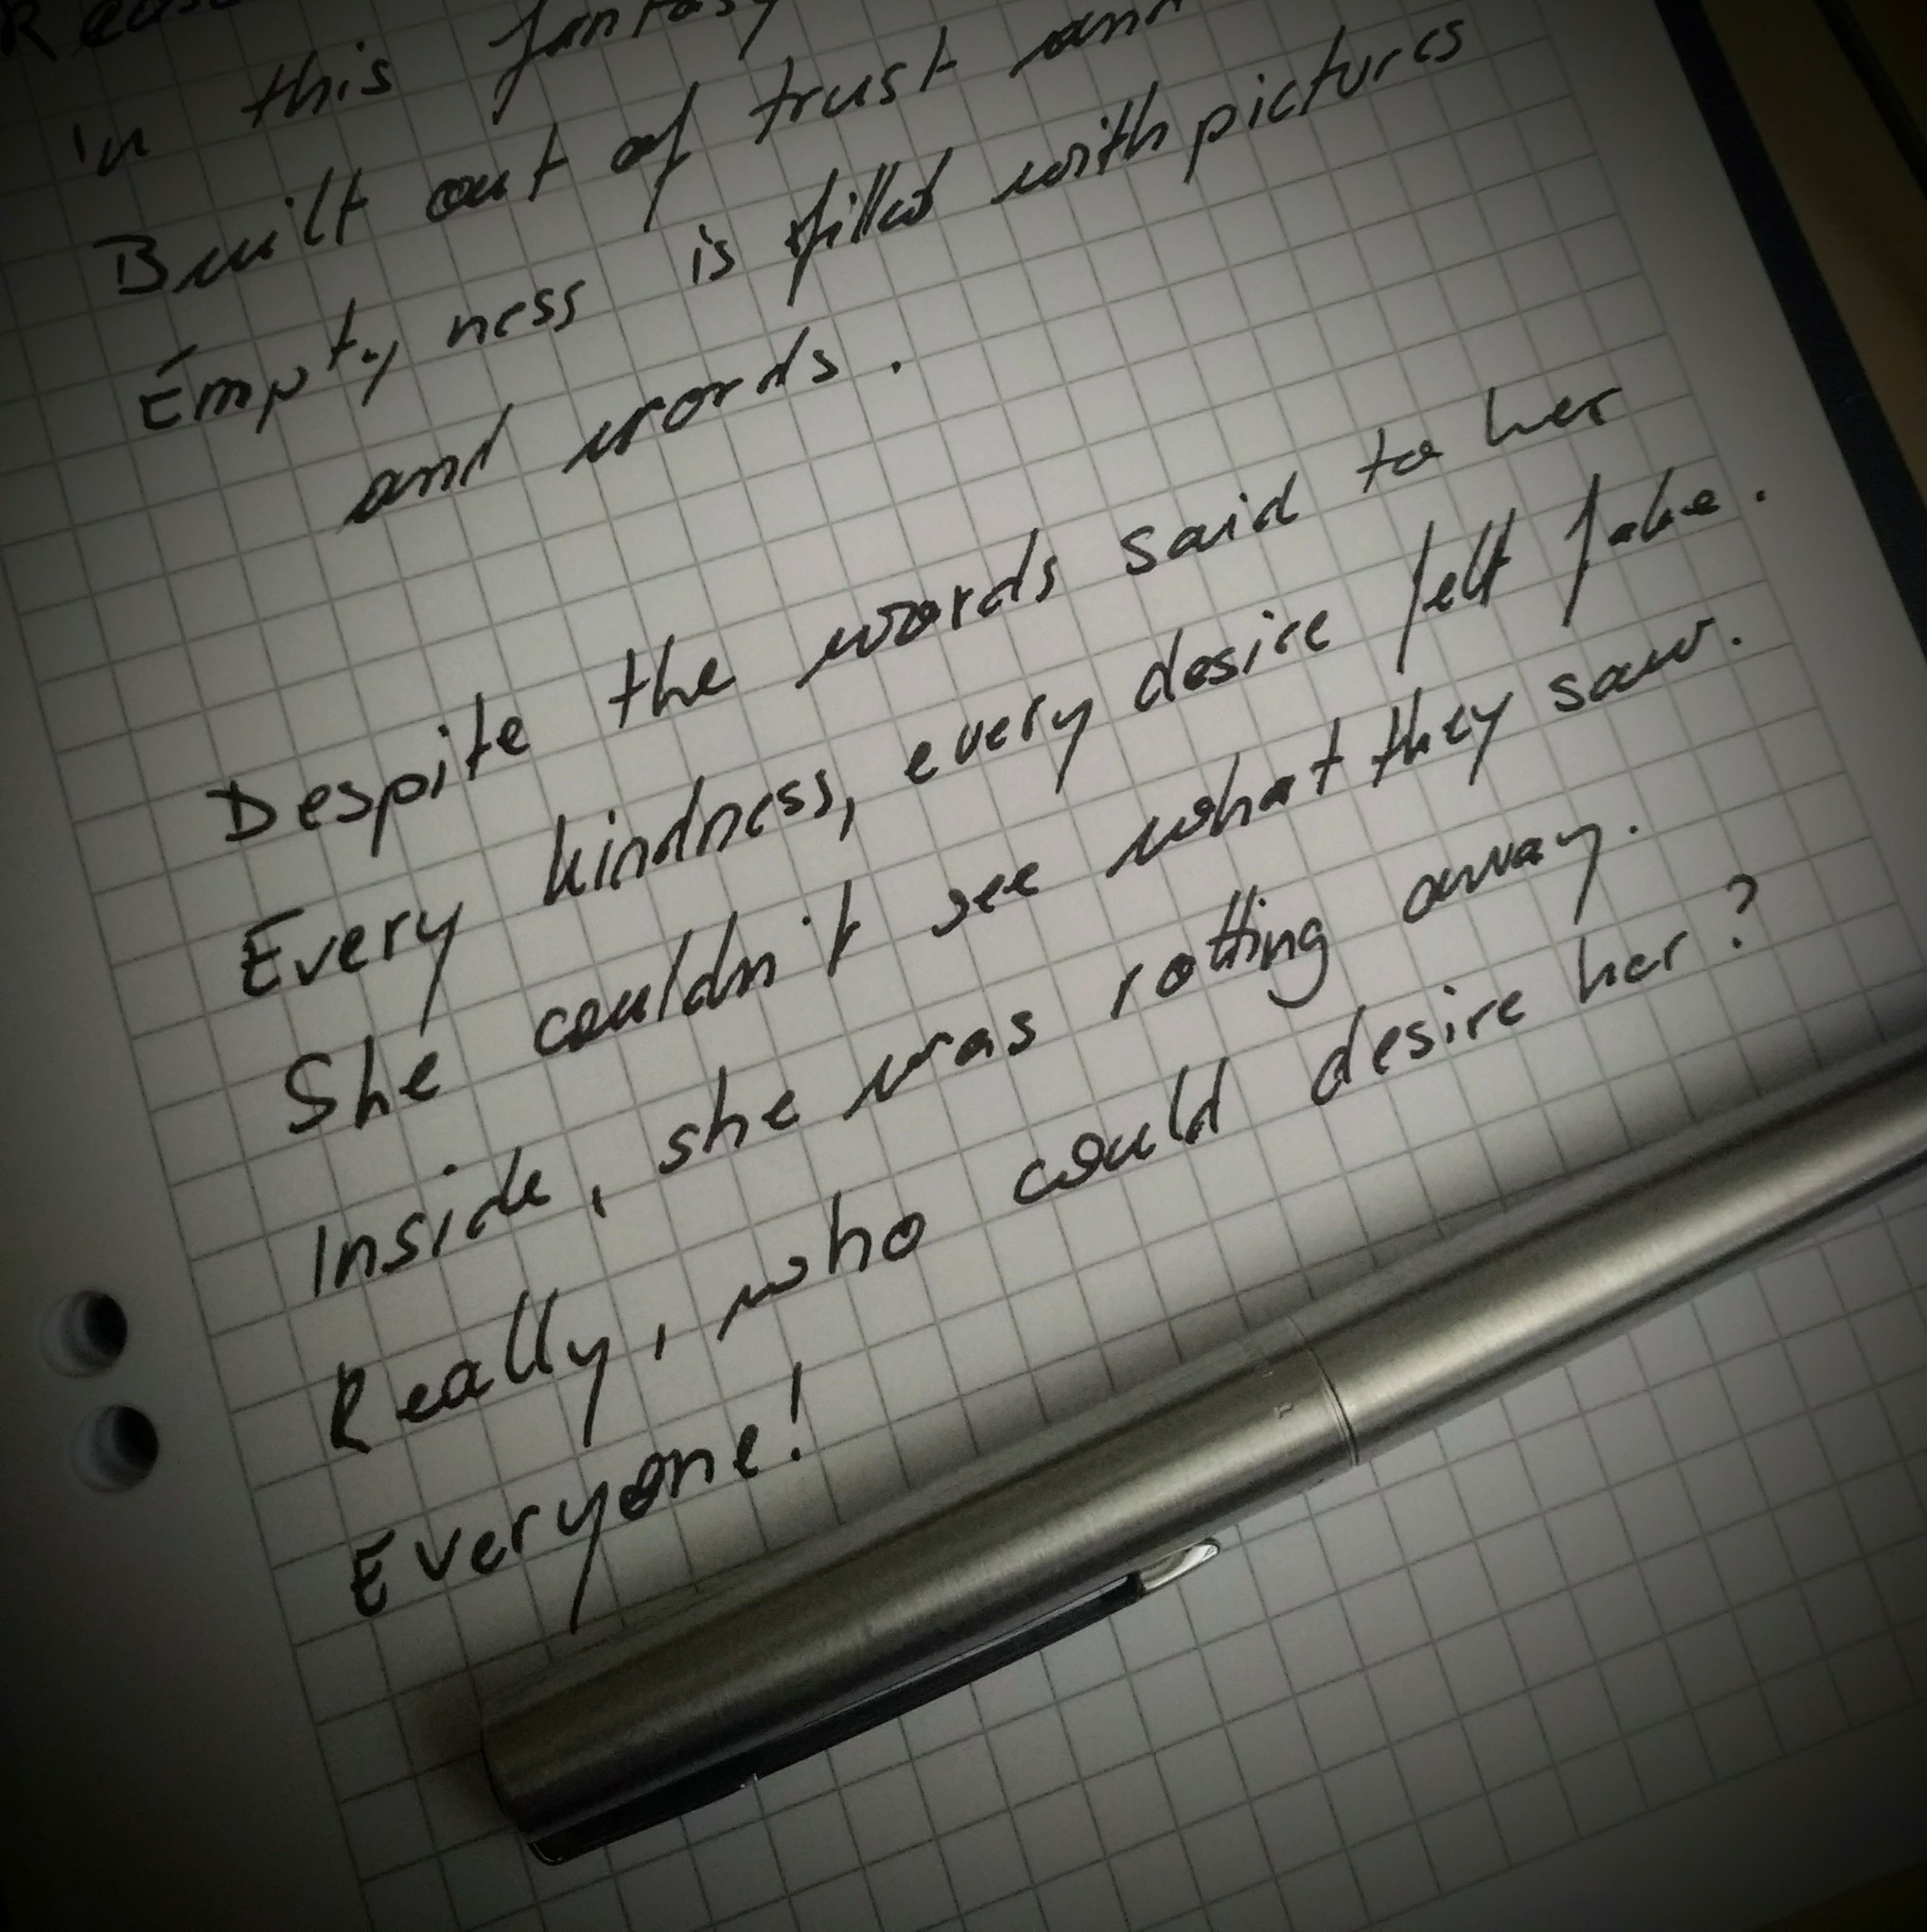 in this fantasy
Built out of trust and
Emptyness is filled with pictures
and words.
Despite the words said to her
Every kindness, every desire felt fake.
She couldn't see what they saw.
Inside, she was rotting away.
Really, who could desire her?
Everyone!